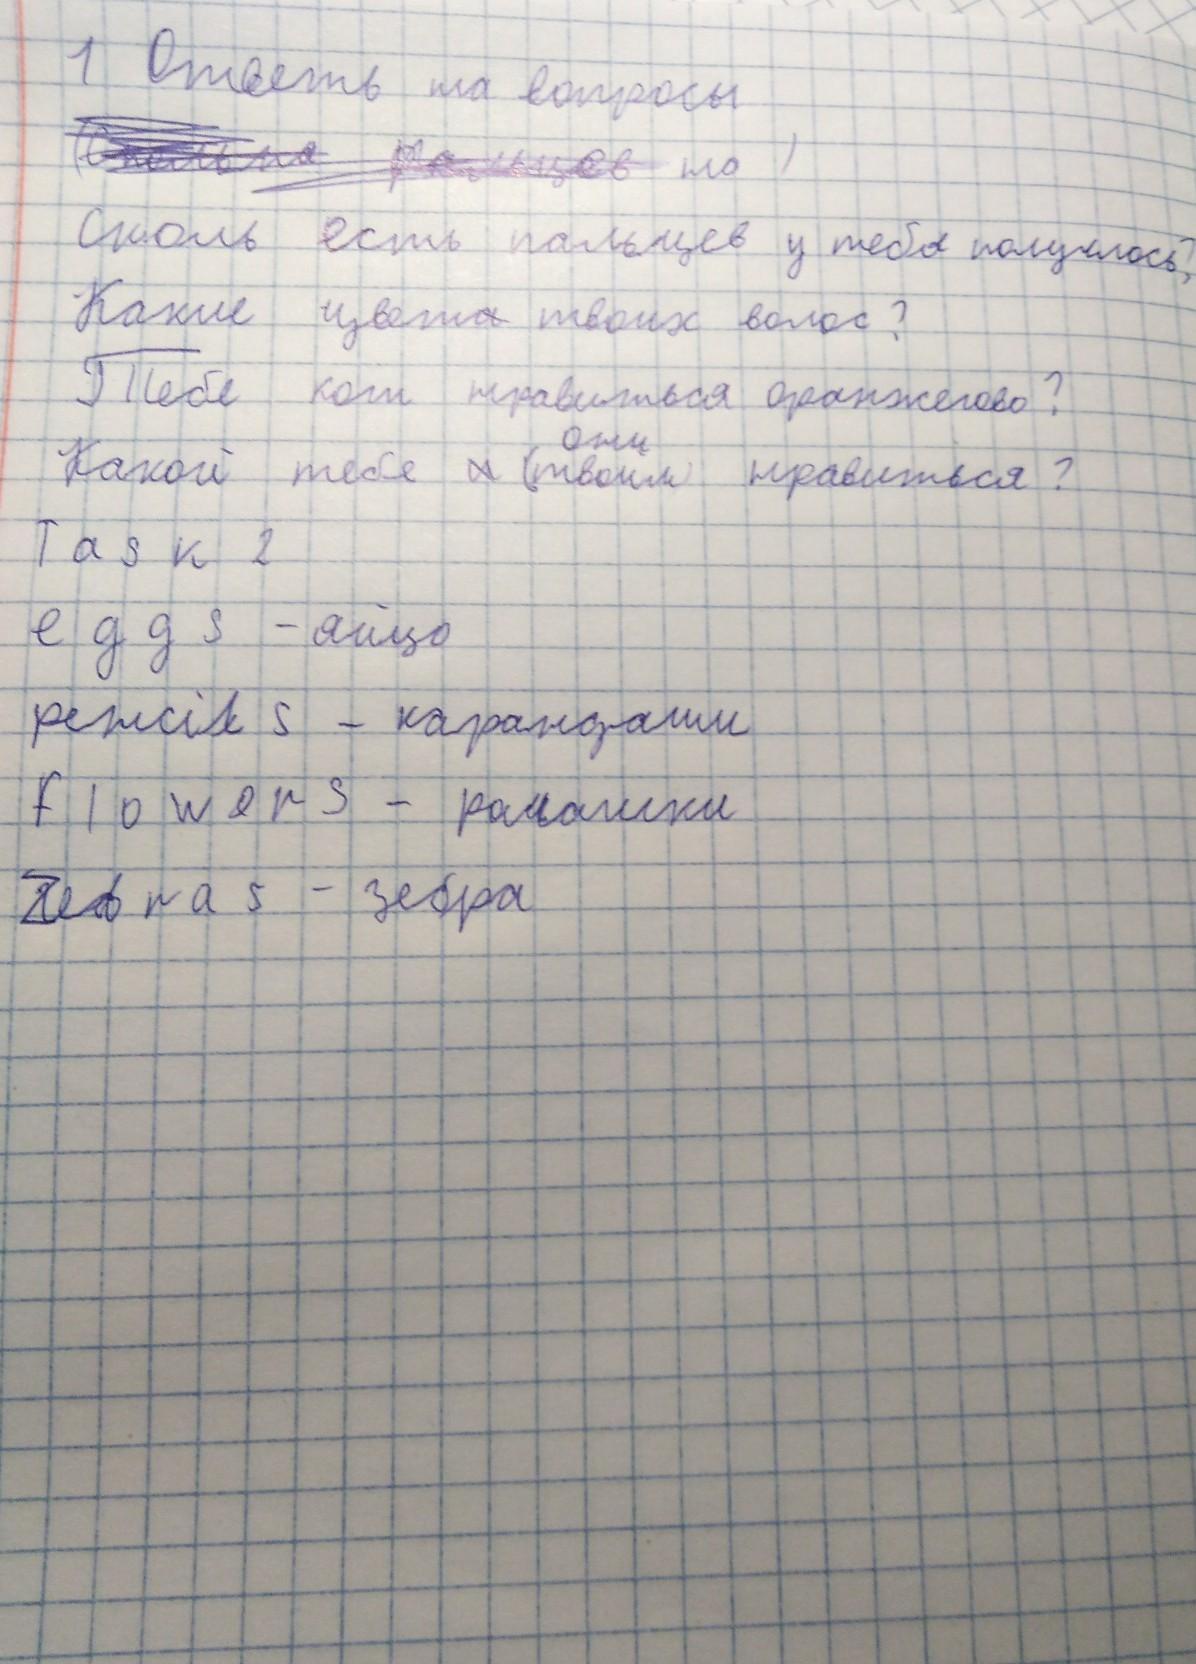 1 Ответь на вопросы
но
Сколь есть пальцев у тебя получлось?
Какие цвета твоих волос?
Тебе кот нравиться оранжегово?
они
Какой тебе (твоим) нравиться?
Task 2
eggs - яйцо
pencils - карандаши
flowers - ромашки
Zebras - зебра